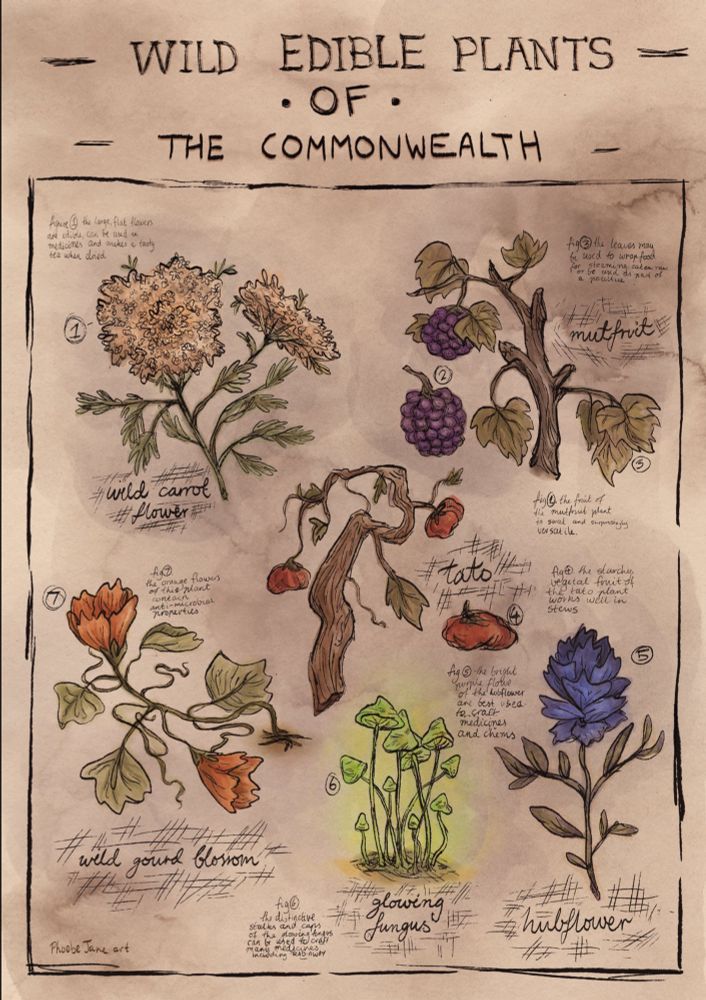 WILD EDIBLE PLANTS
• OF •
THE COMMONWEALTH
figure ① the large, flat flowers
are edible, can be used in
medicines and makes a tasty
tea when dried
①
wild carrot
flower
fig ③ the leaves may
be used to wrap food
for steaming, eaten raw
or be used as part of
a poultice
mutfruit
②
③
the fruit of
the mutfruit plant
is sweet and surprisingly
versatile.
tato
④
fig ④ the starchy
vegetal fruit of
the tato plant
works well in
stews
fig ⑦
the orange flowers
of this plant
contain
anti-microbial
properties
⑦
wild gourd blossom
fig ⑤ the bright
purple
of the hubflower
are best used
to craft
medicines
and chems
⑤
hubflower
⑥
glowing
fungus
fig ⑥
the distinctive
stalks and caps
of the glowing fungus
can be used to craft
many medicines,
including
Phoebe Jane art